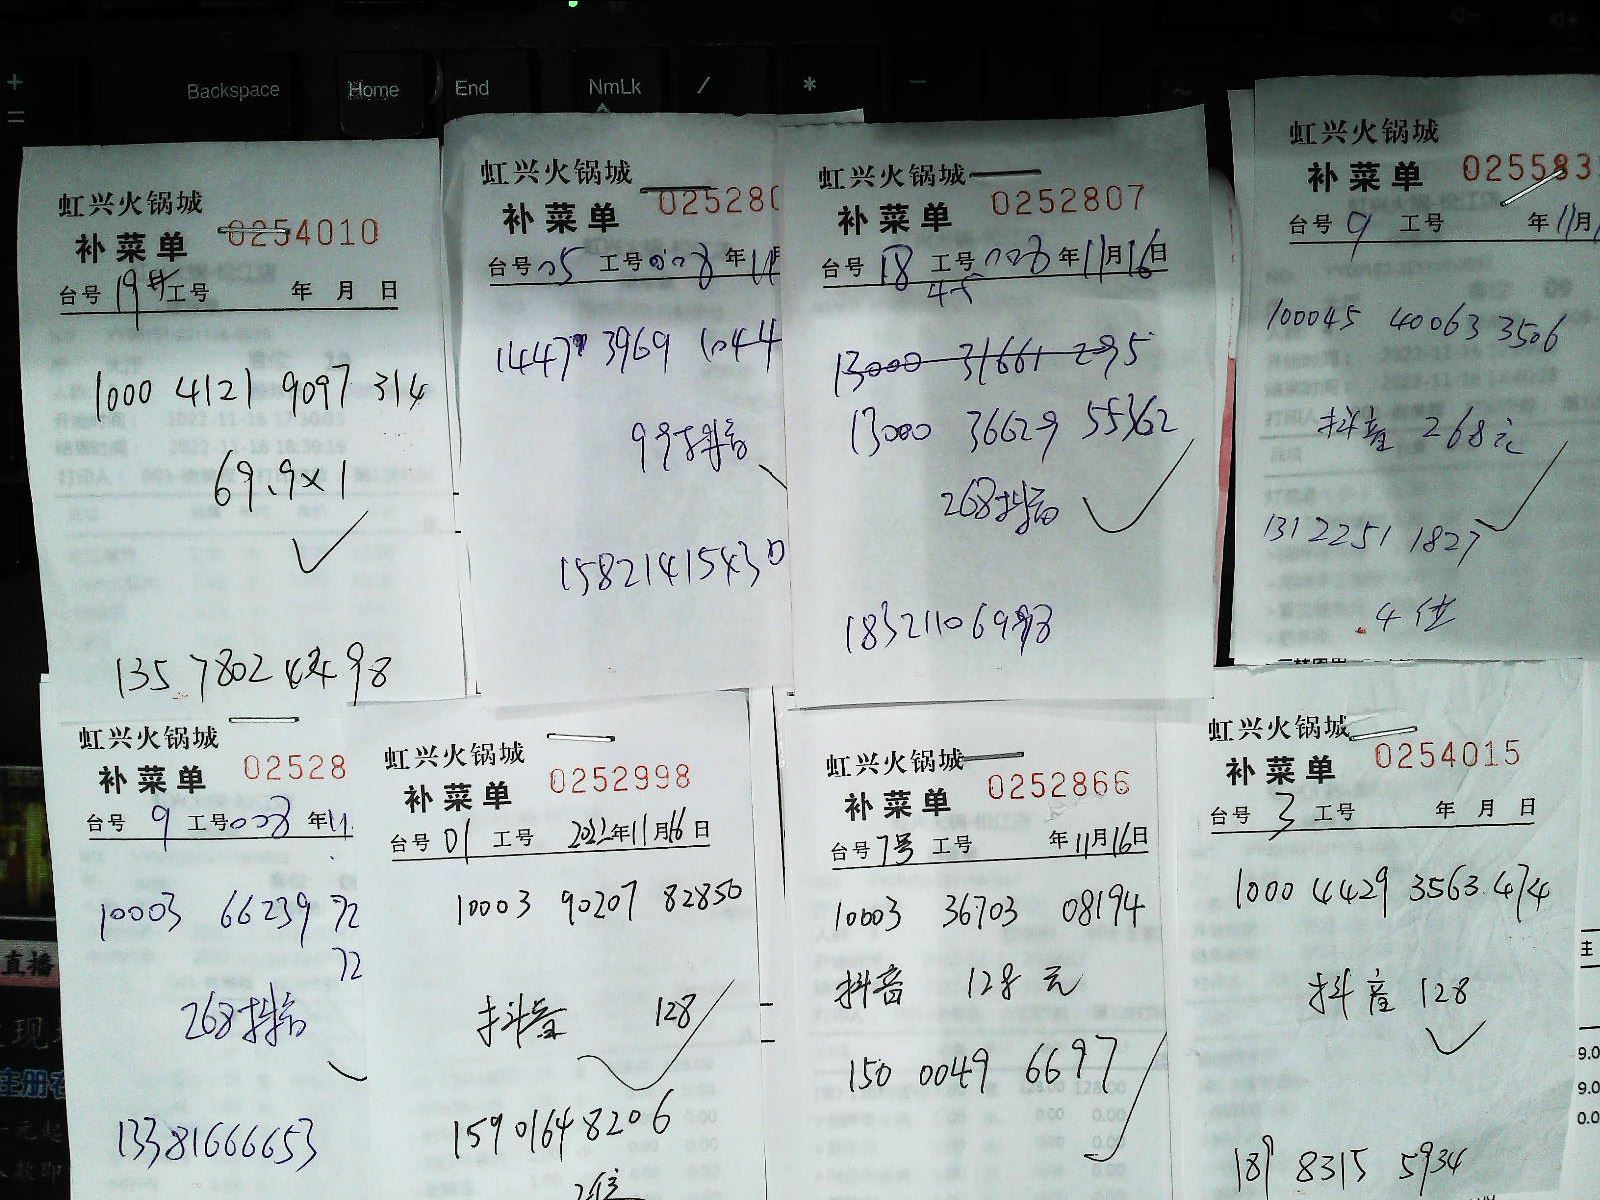 Backspace
Home
End
NmLk
/
*
虹兴火锅城
补菜单 0254010
台号 19号 工号 年 月 日
1000 4121 9097 314
69.9×1
虹兴火锅城
补菜单 025280
台号 05 工号 008 年 11月
3969 1044
99抖音
虹兴火锅城
补菜单 0252807
台号 18 工号 008 年 11月 16日
4位
13000 31661 295
13000 36629 55362
268抖音
虹兴火锅城
补菜单 025583
台号 9 工号 年 11月
100045 40063 3506
抖音 268元
131 2251 1827
4位
虹兴火锅城
补菜单 02528
台号 9 工号 008 年 11
10003 66239 72
72
268抖音
13381666653
虹兴火锅城
补菜单 0252998
台号 01 工号 2022年 11月 16日
10003 90207 82850
抖音 128
159 0164 8206
2位
虹兴火锅城
补菜单 0252866
台号 7号 工号 年 11月 16日
10003 36703 08194
抖音 128 元
150 0049 6697
虹兴火锅城
补菜单 0254015
台号 3 工号 年 月 日
1000 4429 3563 474
抖音 128
189 8315 5934
直播
9.0
9.0
0.0